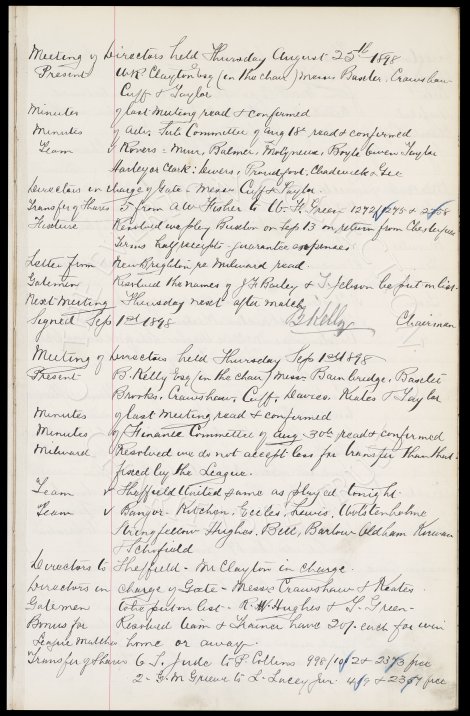 Meeting of Directors held Thursday August 25th 1898
Present W.R. Clayton Esq (in the chair) Messrs Baxter, Crawshaw
Cuff & Taylor
Minutes of last Meeting read & confirmed
Minutes of Sub Committee of Aug 18 read & confirmed
Team v Rovers: Muir, Balmer, Molyneux, Boyle Owen Taylor
Harley or Clark: Divers, Proudfoot, Chadwick & Gee
Directors in charge of Gate Messrs Cuff & Taylor
Transfer of Shares 5 from A.W. Fisher to W. H. Green 1272/1275 & 2358
Fixture Resolved we play Buxton on Sep 13 on return from Chesterfield
Terms half receipts - guarantee expenses
Letter from New Brighton re Milward read.
Gatemen Resolved the names of J H Bailey & T. Jelson be put on list.
Next Meeting Thursday next after match
Signed Sep 1st 1898 B Kelly Chairman
Meeting of Directors held Thursday Sep 1st 1898
Present B. Kelly Esq (in the chair) Messrs Bainbridge, Baxter
Brooks, Crawshaw, Cuff, Davies, Keates & Taylor
Minutes of last Meeting read & confirmed
Minutes of Finance Committee of Aug 30th read & confirmed
Milward Resolved we do not accept less for transfer than that
fixed by the League.
Team v Sheffield United same as played tonight
Team v Bangor - Kitchen, Eccles, Lewis, Wolstenholme
Stringfellow Hughes, Bell, Barlow Oldham Kirwan
& Schofield
Directors to Sheffield - Mr Clayton in charge.
Directors in charge of Gate - Messrs Crawshaw & Keates.
Gatemen to be put on list - R. W. Hughes & G. Green -
Bonus for Resolved team & Trainer have 20/- each for win
League Matches home or away.
Transfer of Shares 6 T. Jude to P Collins 998/1002 & 2373 free
2 - G. M Grieve to L. Lacey Junr 419 & 2357 free